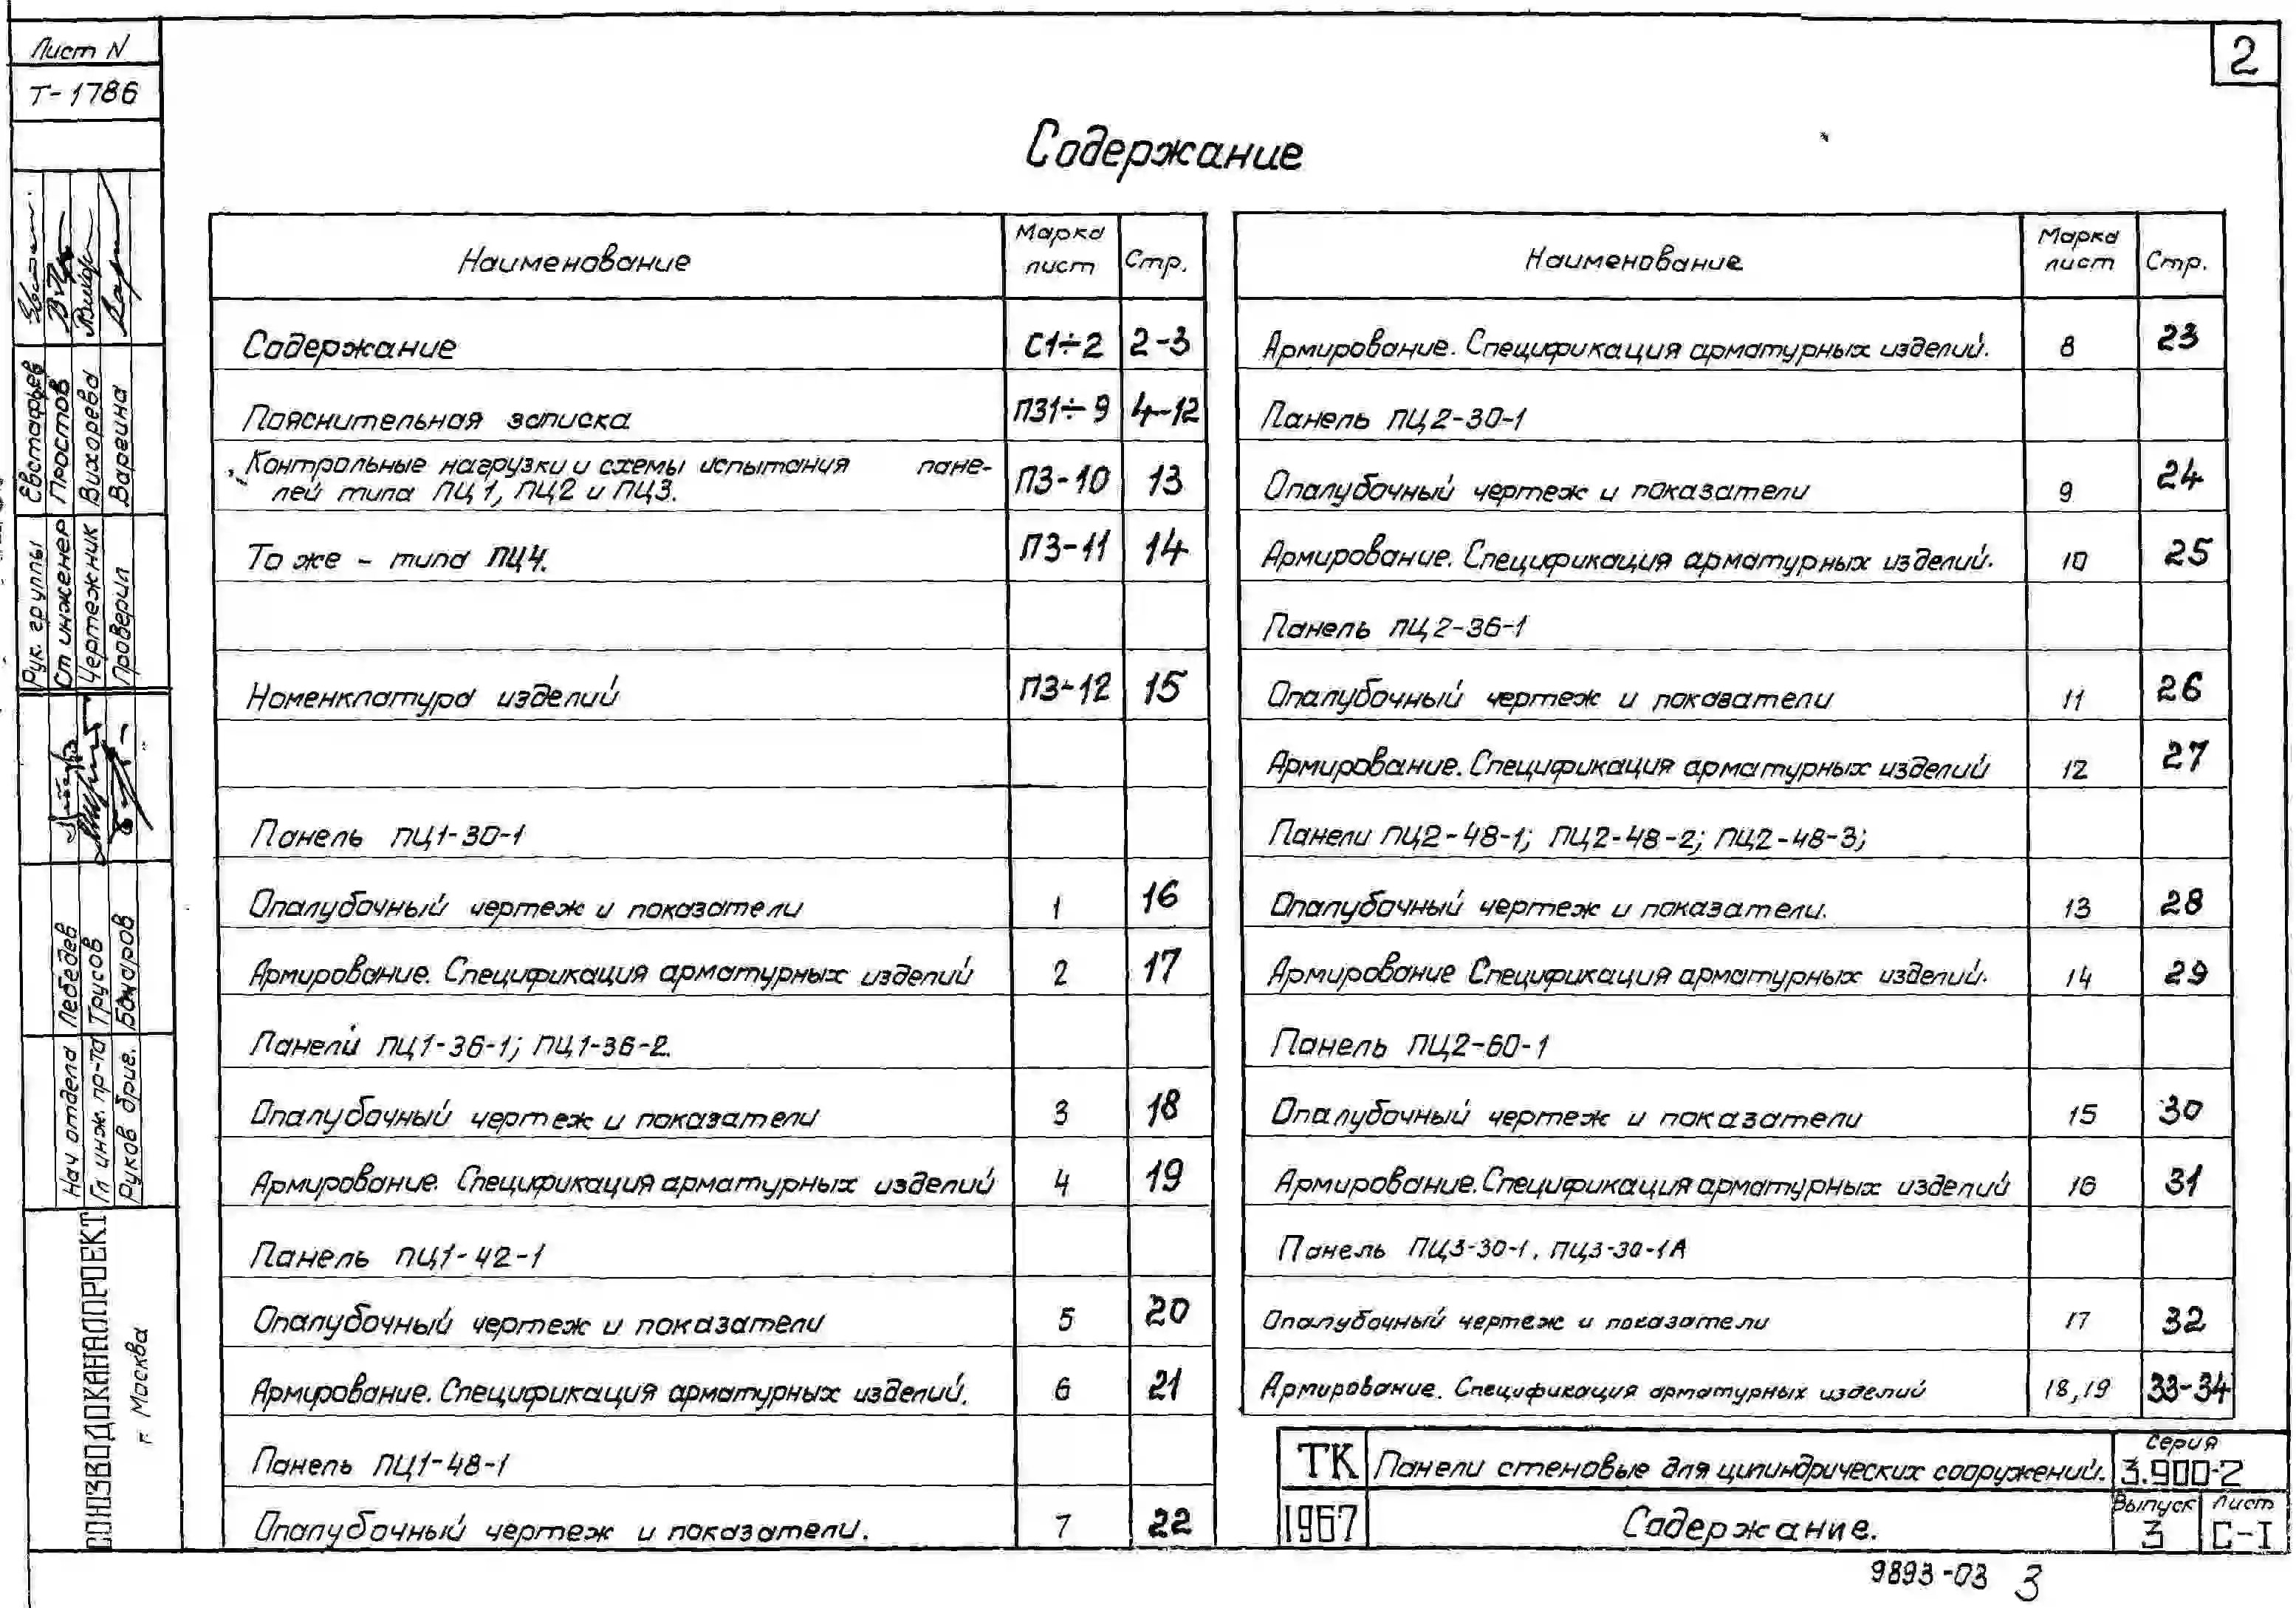 Лист N
Т-1786
2
Содержание
Наименование Марка лист Стр.
Содержание С1÷2 2-3
Пояснительная записка ПЗ1÷9 4-12
Контрольные нагрузки и схемы испытания пане-
лей типа ПЦ1, ПЦ2 и ПЦ3. ПЗ-10 13
То же - типа ПЦ4. ПЗ-11 14
Номенклатура изделий ПЗ-12 15
Панель ПЦ1-30-1
Опалубочный чертеж и показатели 1 16
Армирование. Спецификация арматурных изделий 2 17
Панели ПЦ1-36-1; ПЦ1-36-2.
Опалубочный чертеж и показатели 3 18
Армирование. Спецификация арматурных изделий 4 19
Панель ПЦ1-42-1
Опалубочный чертеж и показатели 5 20
Армирование. Спецификация арматурных изделий. 6 21
Панель ПЦ1-48-1
Опалубочный чертеж и показатели. 7 22
Наименование Марка лист Стр.
Армирование. Спецификация арматурных изделий. 8 23
Панель ПЦ2-30-1
Опалубочный чертеж и показатели 9 24
Армирование. Спецификация арматурных изделий. 10 25
Панель ПЦ2-36-1
Опалубочный чертеж и показатели 11 26
Армирование. Спецификация арматурных изделий 12 27
Панели ПЦ2-48-1; ПЦ2-48-2; ПЦ2-48-3;
Опалубочный чертеж и показатели. 13 28
Армирование Спецификация арматурных изделий. 14 29
Панель ПЦ2-60-1
Опалубочный чертеж и показатели 15 30
Армирование. Спецификация арматурных изделий 16 31
Панель ПЦ3-30-1, ПЦ3-30-1А
Опалубочный чертеж и показатели 17 32
Армирование. Спецификация арматурных изделий 18,19 33-34
ТК Панели стеновые для цилиндрических сооружений. Серия 3.900-2
1967 Содержание. Выпуск 3 Лист С-I
9893-03 3
Рук. группы Евстафьев
Ст инженер Простов
Чертежник Вихорева
Проверил Варгина
Нач отдела Лебедев
Гл инж. пр-та Трусов
Руков бриг. Бочаров
СОЮЗВОДОКАНАЛПРОЕКТ
г. Москва